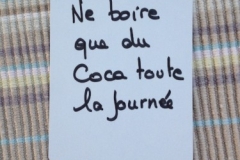 Ne boire
que du
Coca toute
la journée